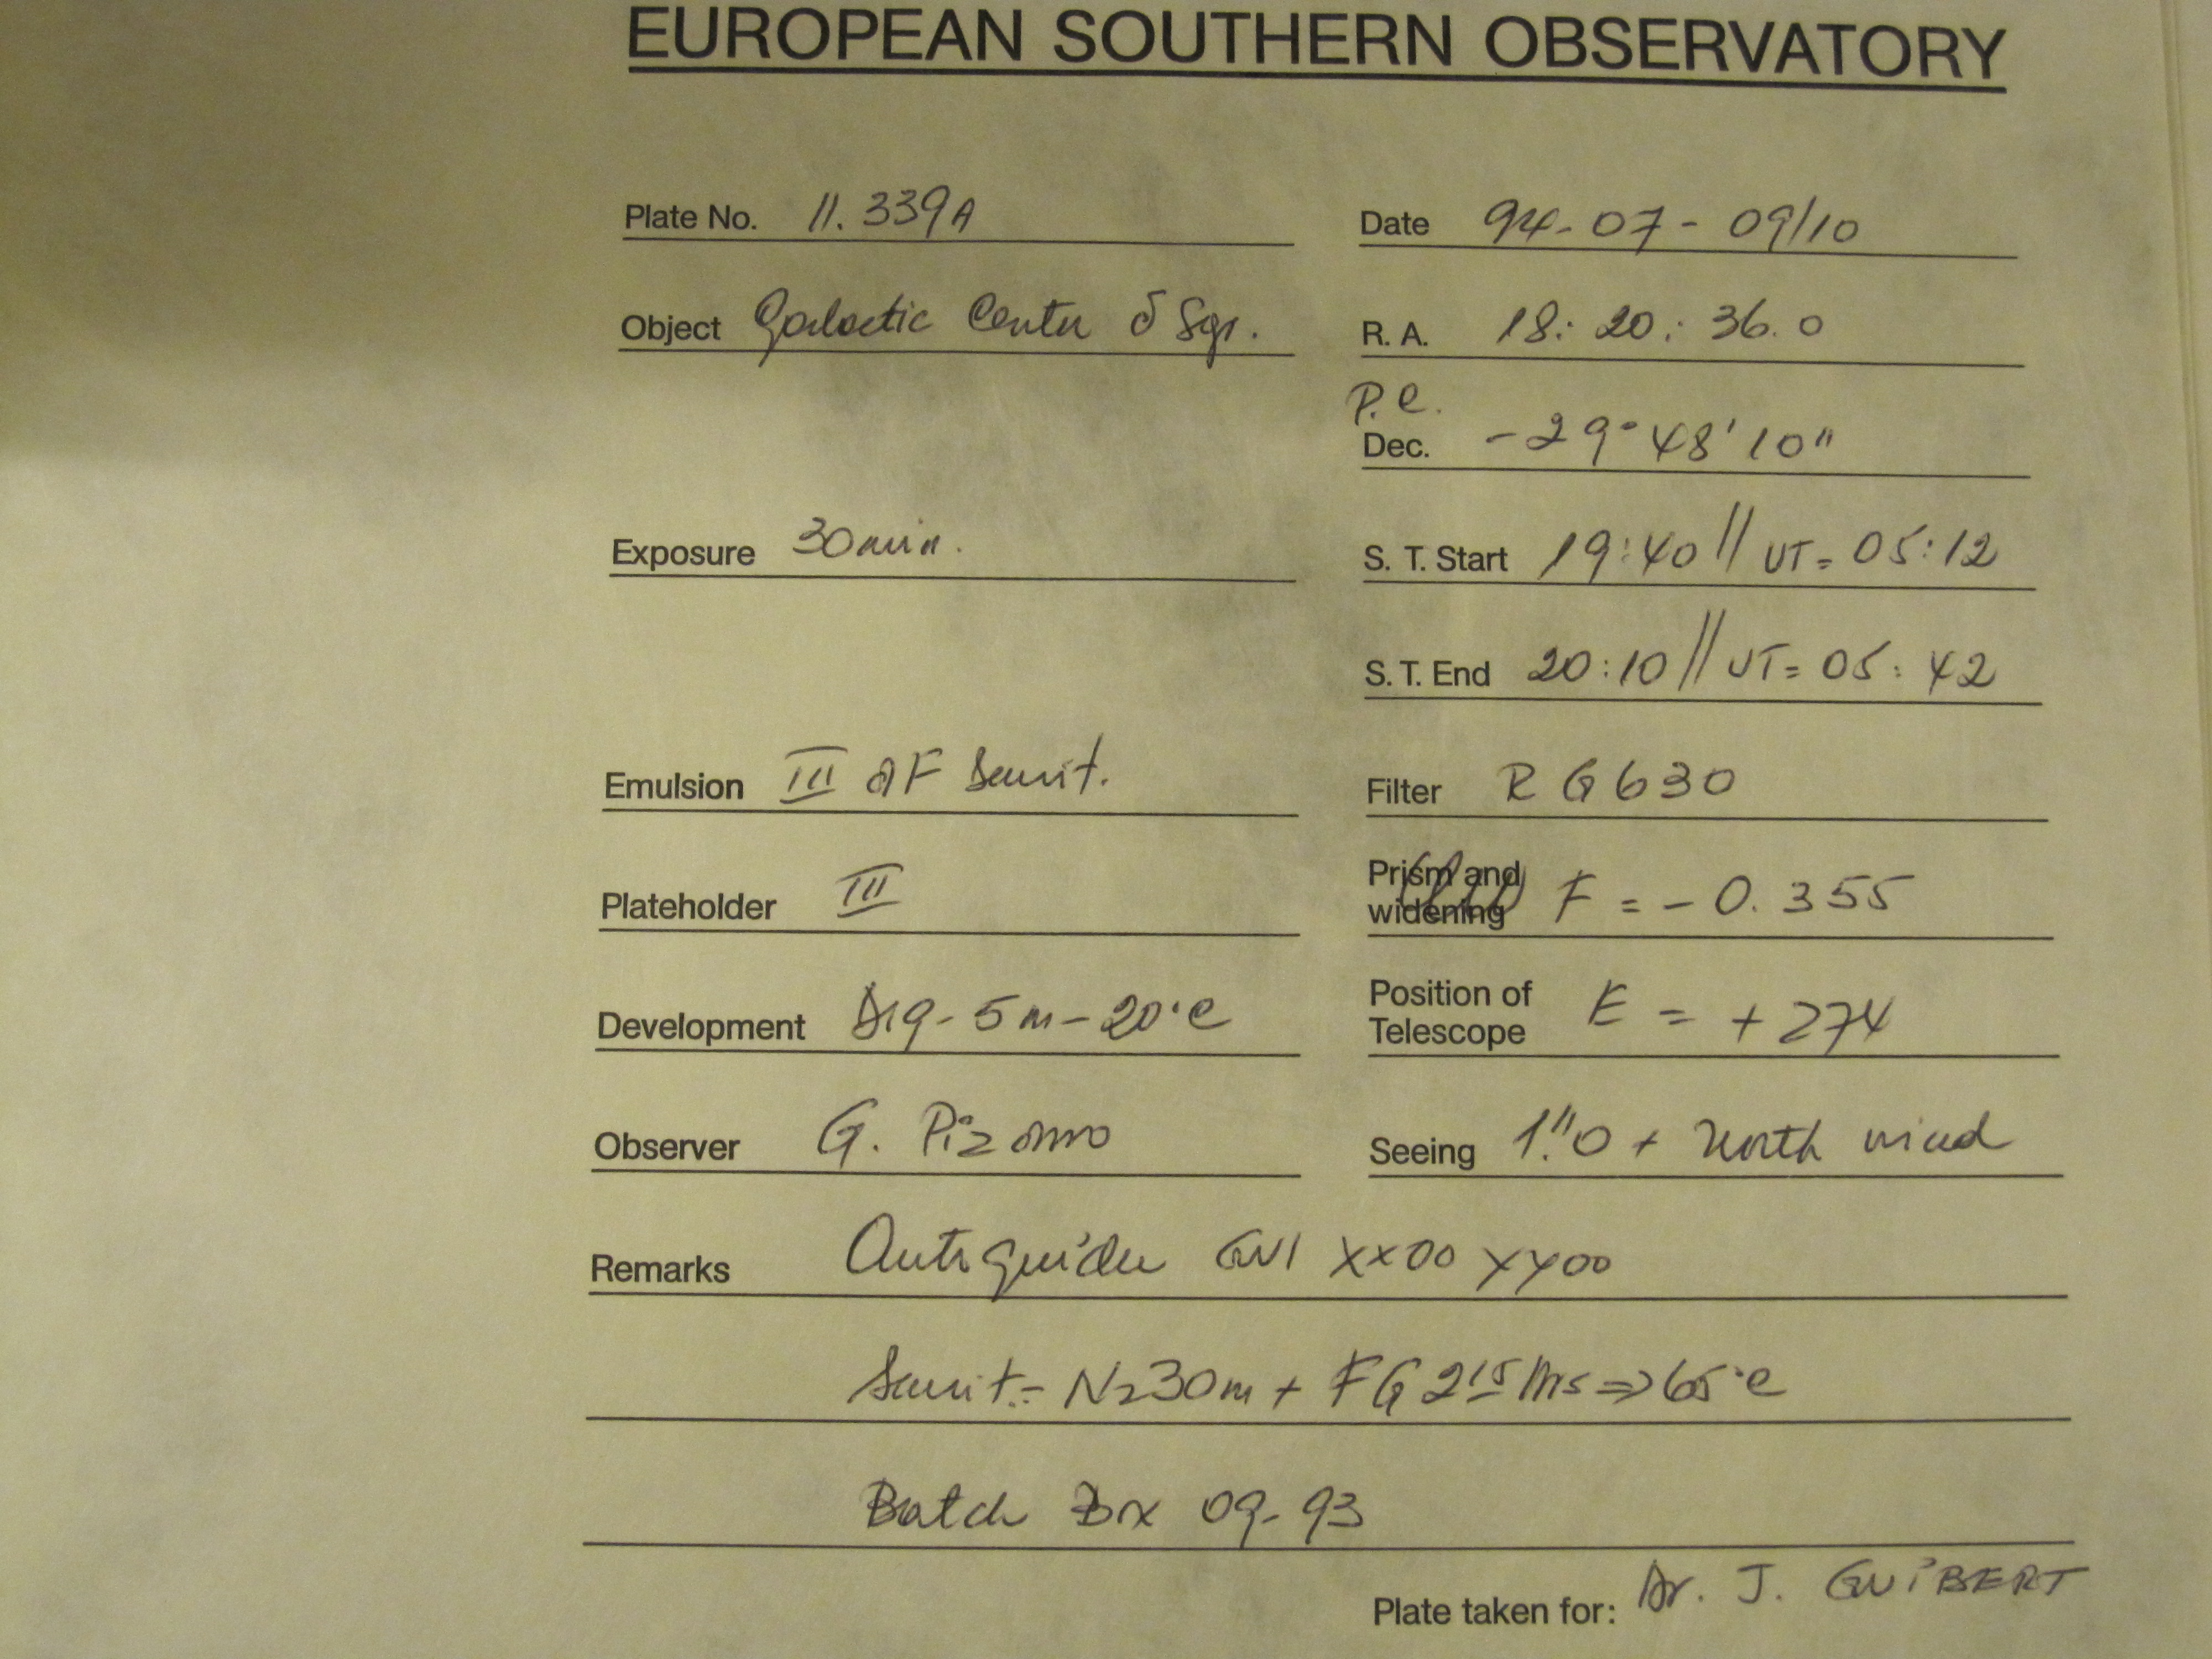 EUROPEAN SOUTHERN OBSERVATORY
Plate No. 11.339A
Date 94-07-09/10
Object Galactic Center δ Sgr.
R. A. 18: 20: 36.0
P.e.
Dec. -29°48'10"
Exposure 30min.
S. T. Start 19:40 // UT= 05:12
S. T. End 20:10 // UT= 05:42
Emulsion III aF Sensit.
Filter RG630
Plateholder III
Prism and widening F = -0.355
Development D19-5m-20°C
Position of Telescope E = +274
Observer G. Pizarro
Seeing 1".0 + North wind
Remarks Autoguider GU1 XX00 YY00
Sensit.- N2 30m + FG 2 15 ⇒ 65°C
Batch 09-93
Plate taken for: Dr. J. GUIBERT